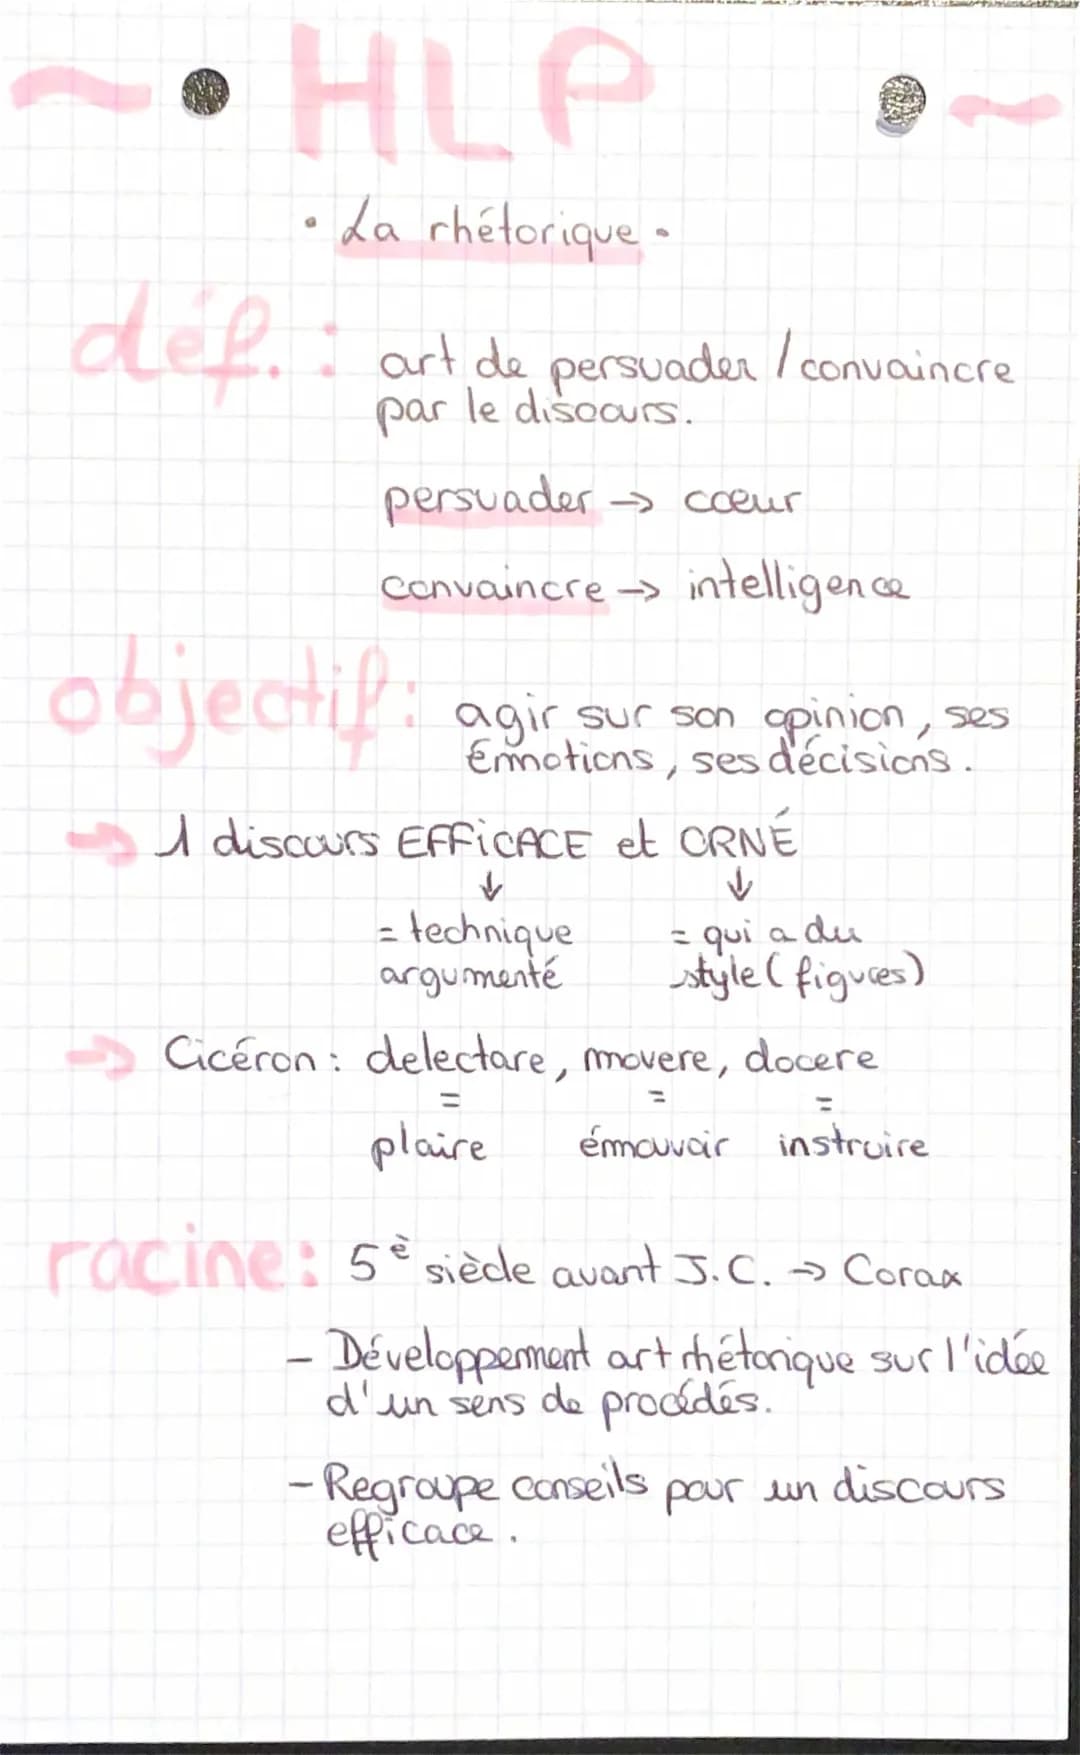 ~ • HLP • ~
• La rhétorique •
déf. :
art de persuader / convaincre
par le discours.
persuader → cœur
convaincre → intelligence
objectif :
agir sur son opinion, ses
émotions, ses décisions.
→ 1 discours EFFiCACE et ORNÉ
↓ ↓
= technique = qui a du
argumenté style (figures)
→ Cicéron : delectare, movere, docere
= = =
plaire émouvoir instruire
racine : 5è siècle avant J.C. → Corax
- Développement art rhétorique sur l'idée
d'un sens de procédés.
- Regroupe conseils pour un discours
efficace.